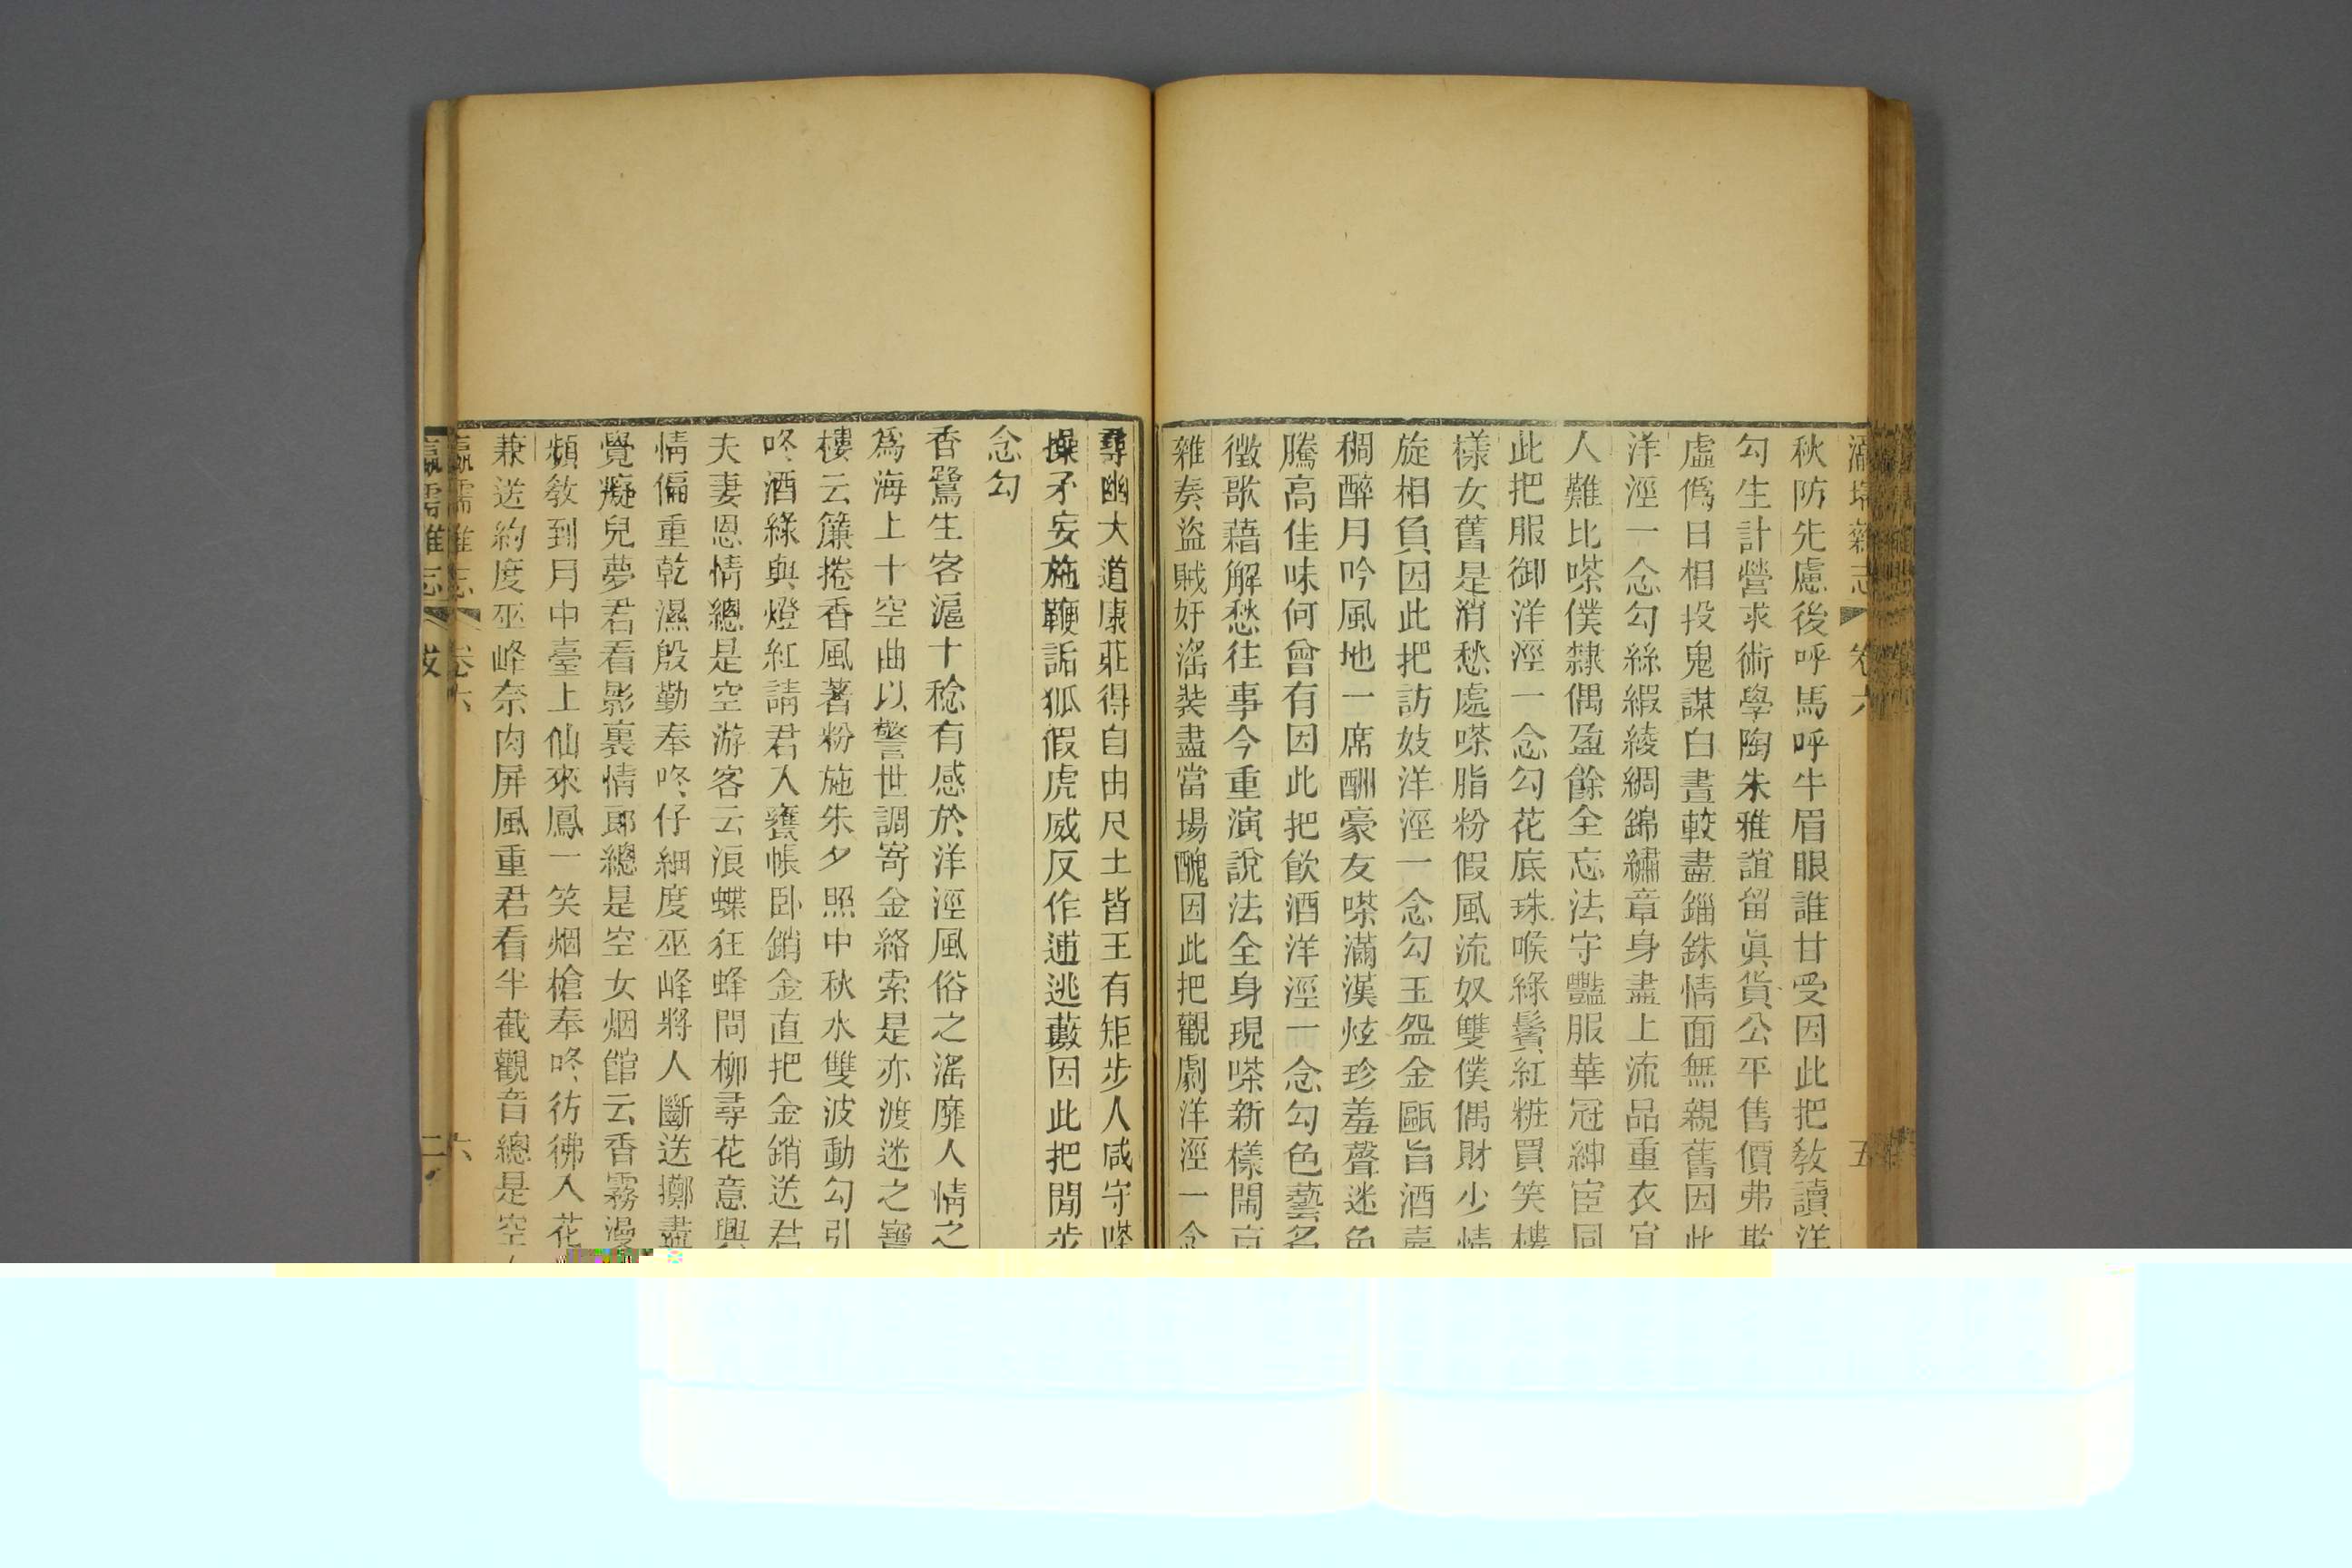 瀛壖雜志 卷六 五
秋防先慮後呼馬呼牛眉眼誰甘受因此把敎讀洋
勾生計營求術學陶朱雅誼留眞貨公平售價弗欺
虛僞日相投鬼謀白晝較盡錙銖情面無親舊因此
洋涇一念勾絲緞綾綢錦繡章身盡上流品重衣宜
人難比嗏僕隸偶盈餘全忘法守豔服華冠紳宦同
此把服御洋涇一念勾花底珠喉綠鬢紅粧買笑樓
樣女舊是消愁處嗏脂粉假風流奴雙僕偶財少情
旋相負因此把訪妓洋涇一念勾玉盌金甌旨酒嘉
稠醉月吟風地一席酬豪友嗏滿漢炫珍羞聲迷色
騰高佳味何曾有因此把飮酒洋涇一念勾色藝名
徵歌藉解愁往事今重演說法全身現嗏新樣鬧京
雜奏盜賊奸滛装盡當場醜因此把觀劇洋涇一念
尋幽大道康莊得自由尺土皆王有矩步人咸守嗏
操矛妄施鞭詬狐假虎威反作逋逃藪因此把閒步
念勾
香鷺生客滬十稔有感於洋涇風俗之滛靡人情之
爲海上十空曲以警世調寄金絡索是亦渡迷之寶
樓云簾捲香風著粉施朱夕照中秋水雙波動勾引
咚酒綠與燈紅請君入甕帳卧銷金直把金銷送君
夫妻恩情總是空游客云浪蝶狂蜂問柳尋花意興
情偏重乾濕殷勤奉咚仔細度巫峰將人斷送擲盡
覺癡兒夢君看影裏情郎總是空女烟館云香霧漫
頻敎到月中臺上仙來鳳一笑烟槍奉咚彷彿入花
兼送約度巫峰奈肉屏風重君看半截觀音總是空
瀛壖雜志 卷六 六
瀛壖雜志 跋 二